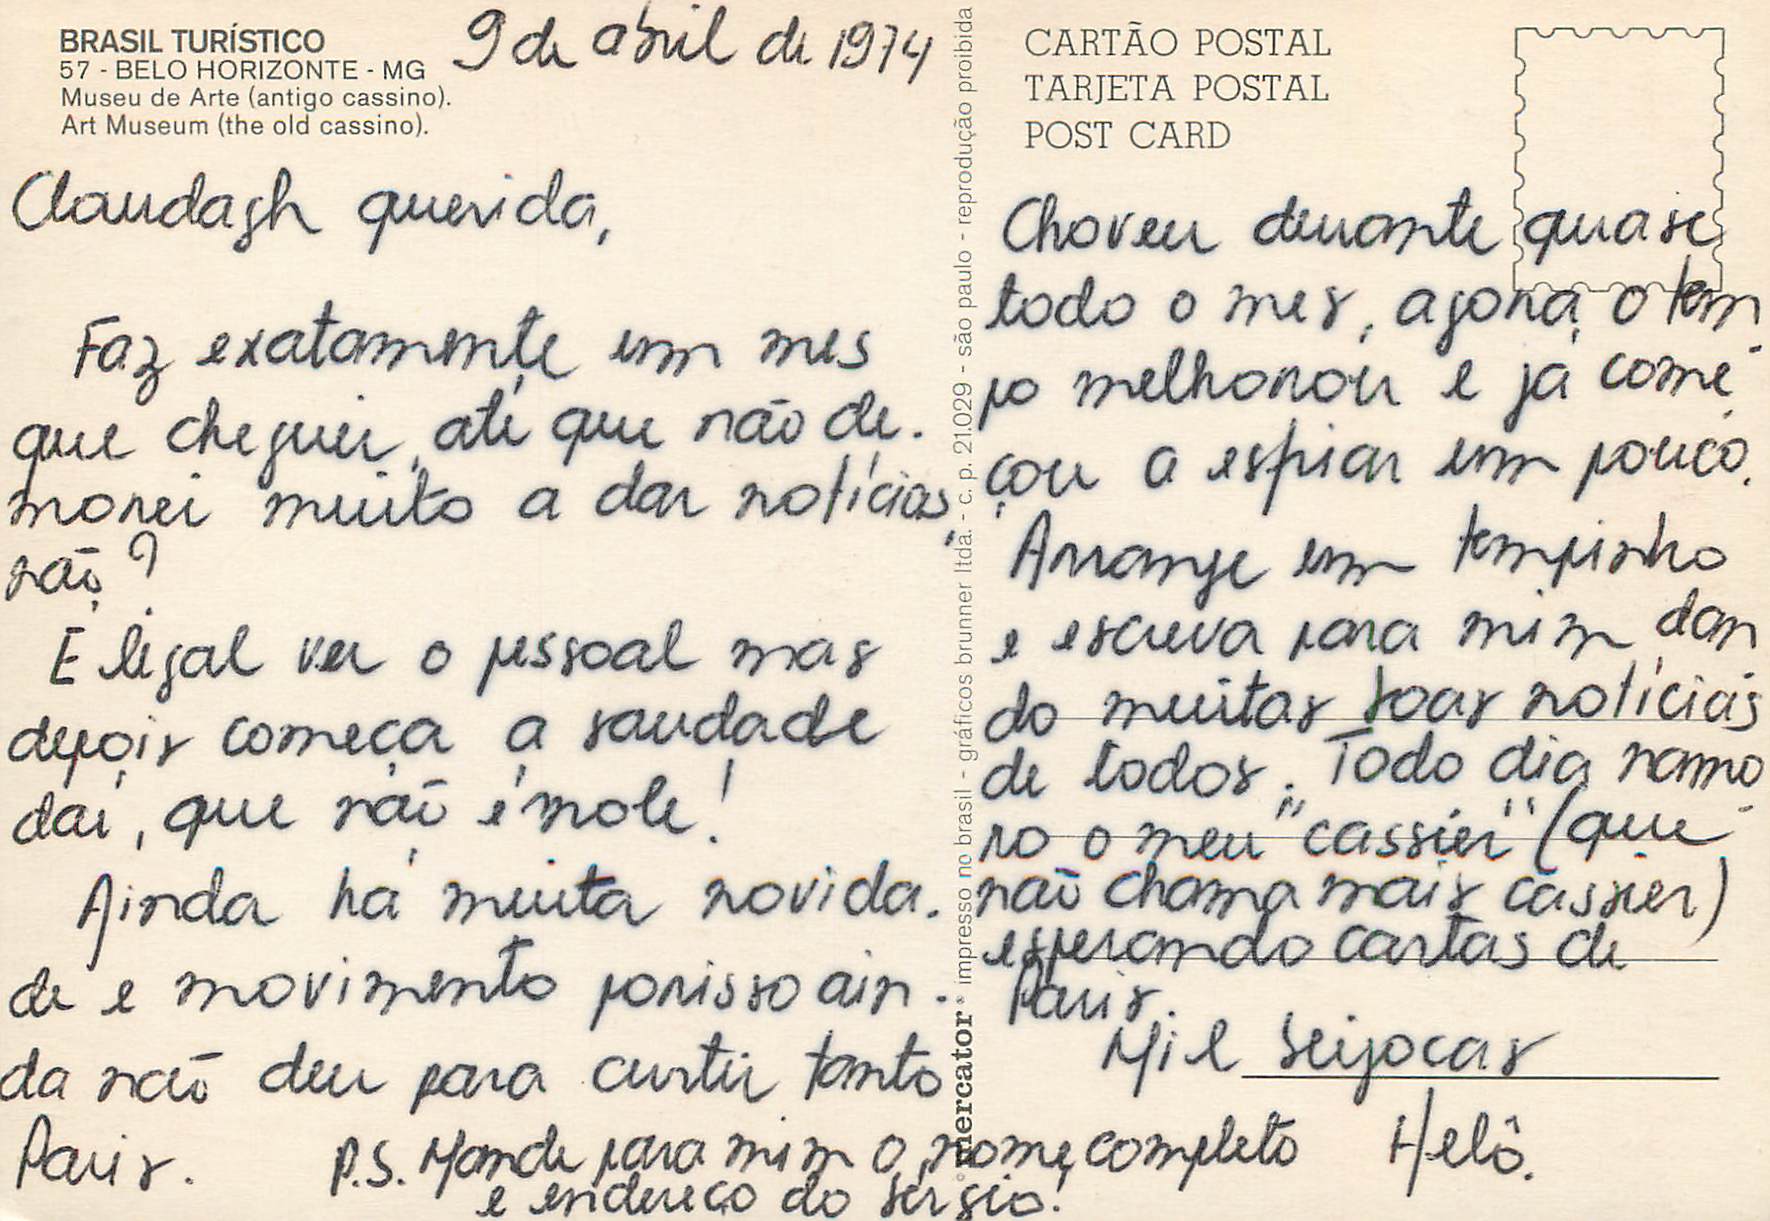 BRASIL TURÍSTICO
57 - BELO HORIZONTE - MG
Museu de Arte (antigo cassino).
Art Museum (the old cassino).
9 de abril de 1974
Claudagh querida,
Faz exatamente um mes
que cheguei, até que não de-
morei muito a dar notícias,
não?
É legal ver o pessoal mas
depois começa a saudade
daí, que não é mole!
Ainda há muita novida-
de e movimento porisso ain-
da não deu para curtir tanto
Paris.
P.S. Mande para mim o nome completo
e endereço do Sérgio!
mercator ® impresso no brasil - gráficos brunner ltda. - c. p. 21.029 - são paulo - reprodução proibida
CARTÃO POSTAL
TARJETA POSTAL
POST CARD
Choveu durante quase
todo o mes, agora, o tem-
po melhorou e já come-
çou a espiar um pouco.
Arrange um tempinho
e escreva para mim dan-
do muitas boas notícias
de todos. Todo dia namo-
ro o meu "cassier" (que
não chama mais cassier)
esperando cartas de
Paris.
Mil beijocas
Helô.